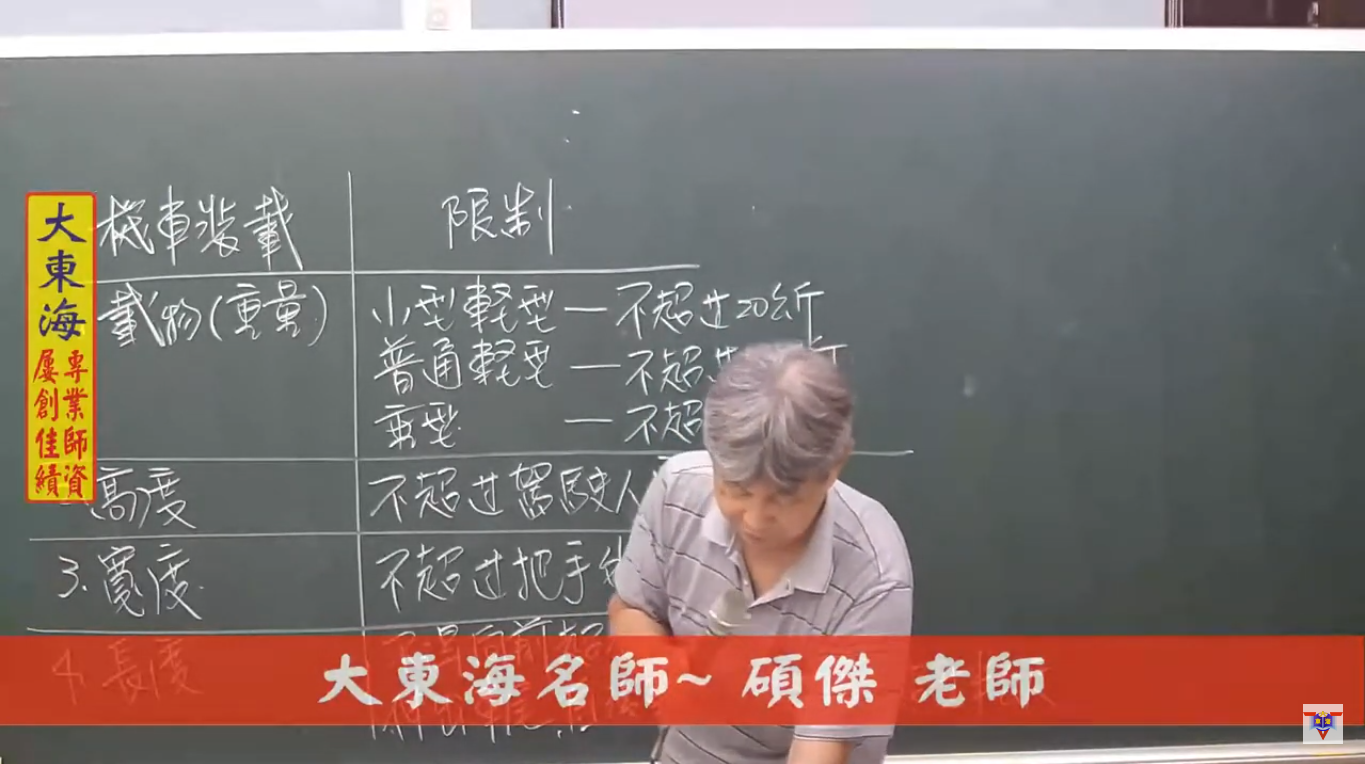 大東海
專業師資
屢創佳績
機車裝載 限制
載物(重量) 小型軽型 — 不超过20公斤
普通軽型 — 不超过
重型 — 不超
高度 不超过駕駛人
3. 寬度 不超过把手
4. 長度 不得向前超
大東海名師~ 碩傑 老師